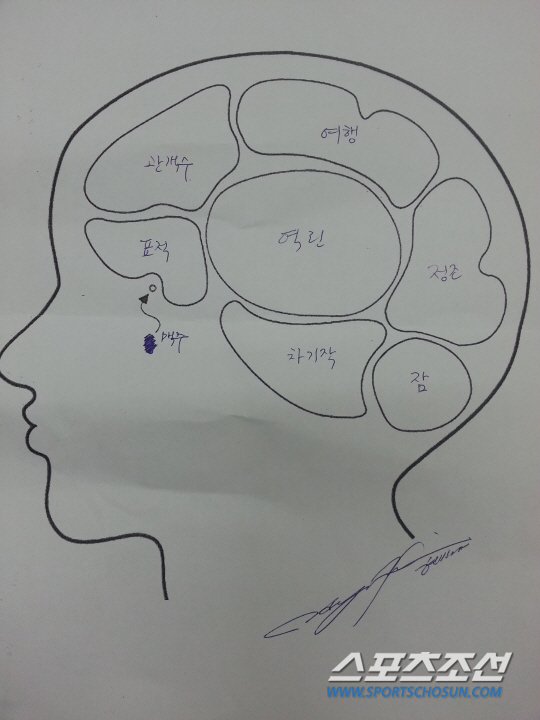 여행
관객수
역린
표적
정조
맥주
차기작
잠
스포츠조선
WWW.SPORTSCHOSUN.COM